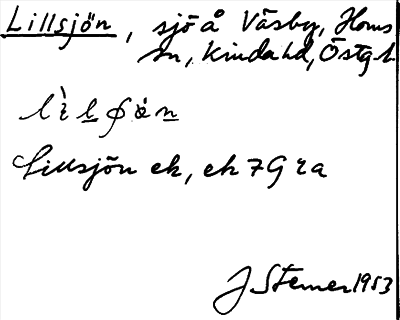 Lillsjön, sjö å Väsby, Horns
sn, Kinda hd, Östg l.
Lillsjön ek, ek 7G
J Sterner 1953